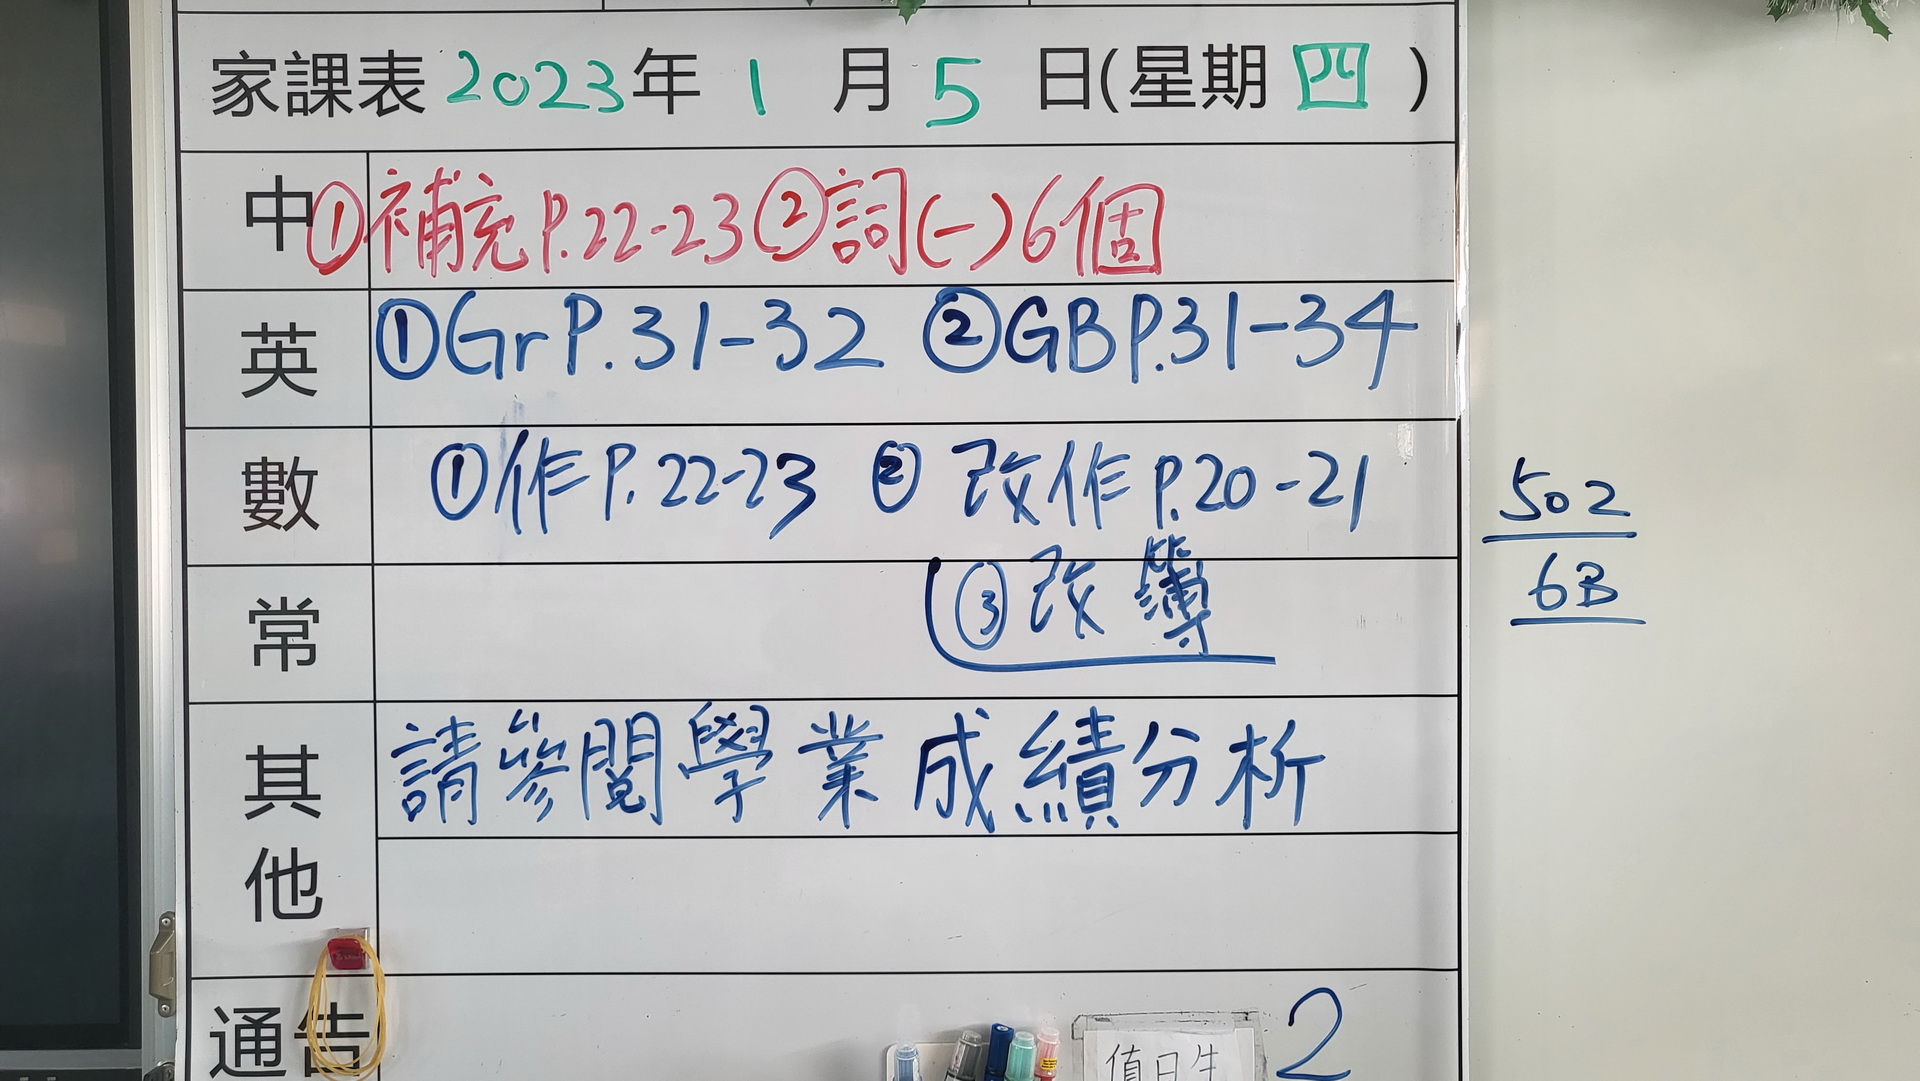 家課表 2023年 1 月 5 日(星期 四 )
中 ①補充P.22-23 ②詞(一)6個
英 ①GrP.31-32 ②GBP.31-34
數 ①作P.22-23 ② 改作P.20-21
常 ③改簿
502
6B
其他 請參閱學業成績分析
通告 2
值日生